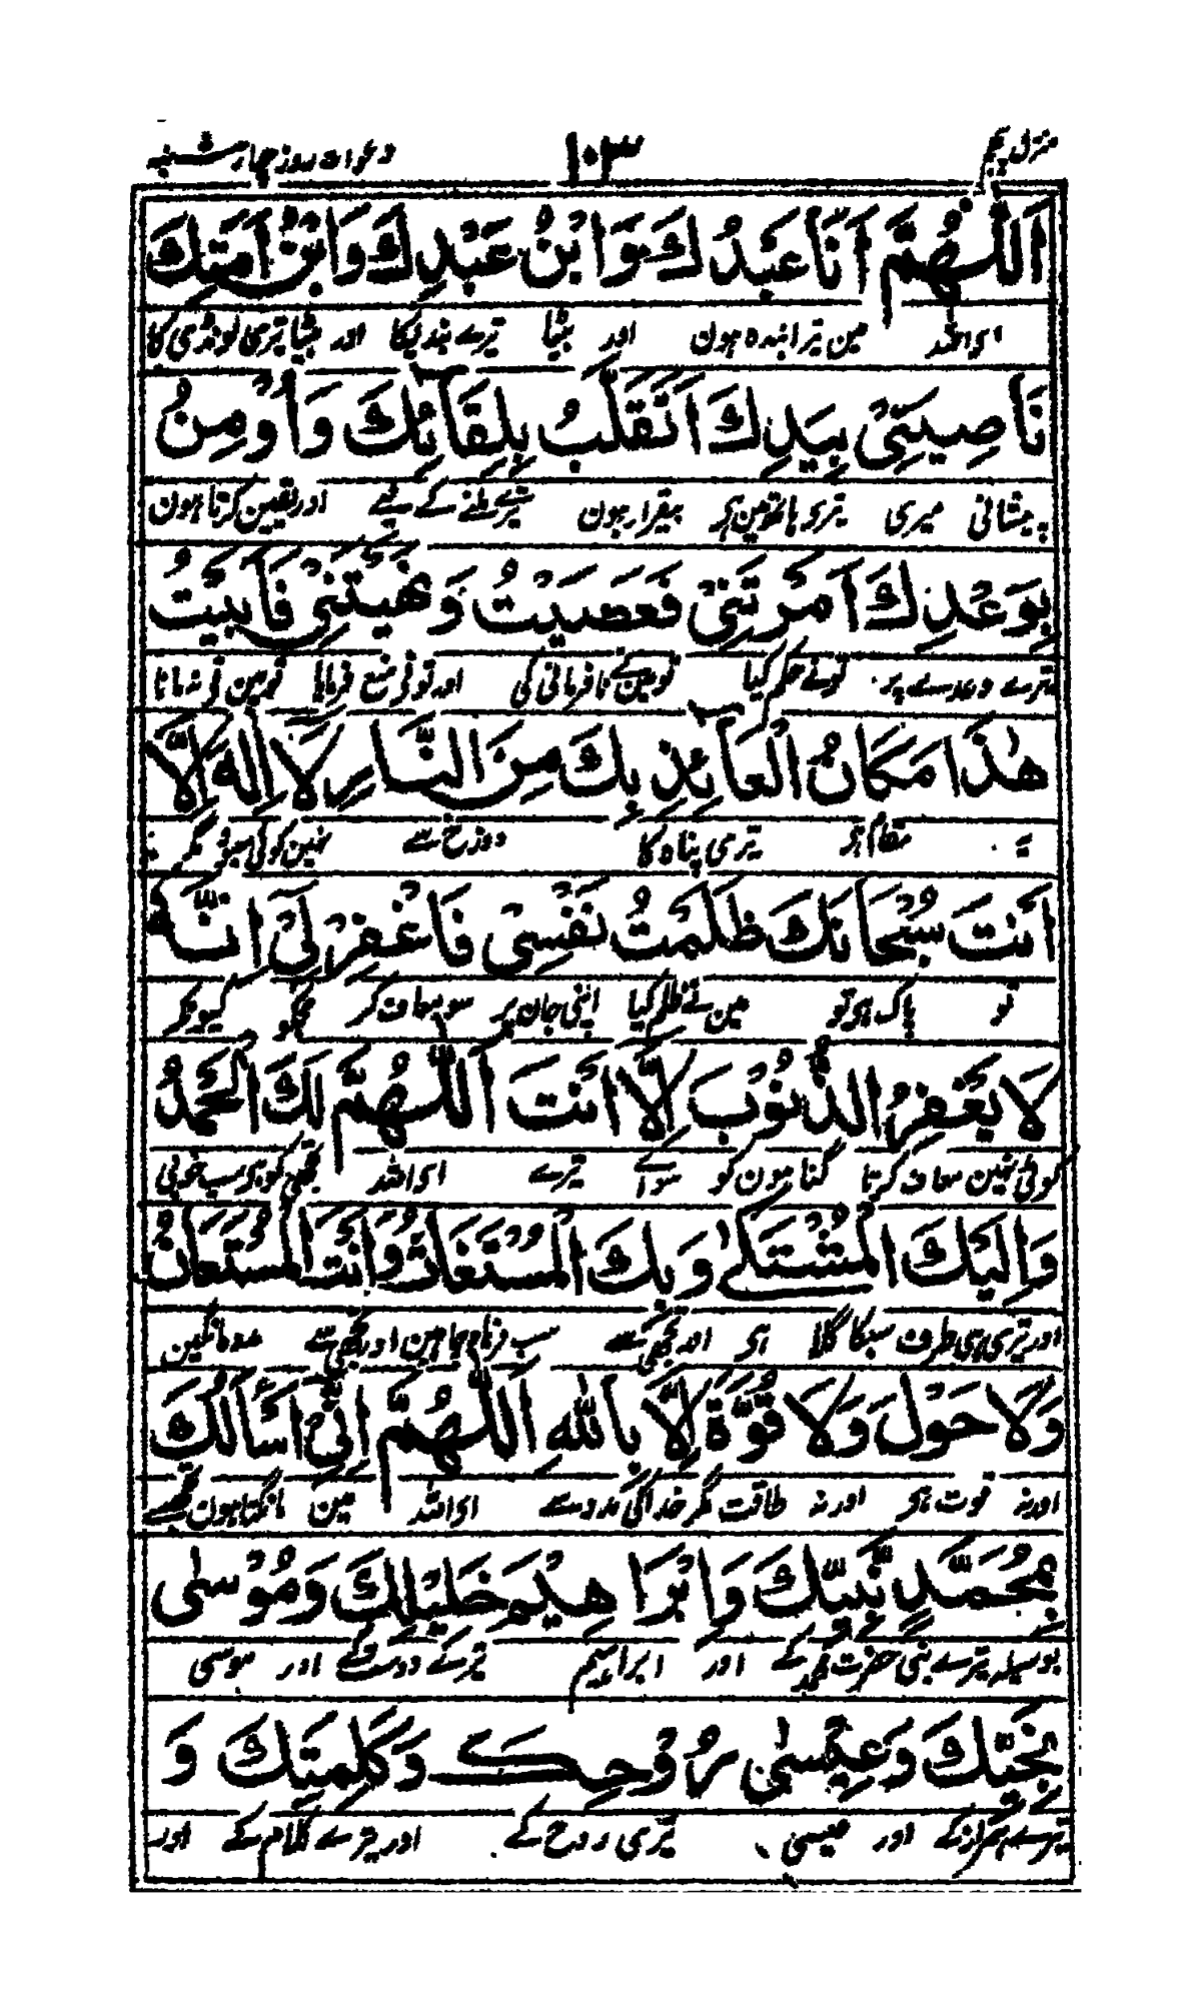 منزل پنجم ١٠٣ دعوات روز چہار شنبہ
اَللّٰهُمَّ اَنَا عَبْدُكَ وَابْنُ عَبْدِكَ وَابْنُ اَمَتِكَ
ای اللہ مین تیرا بندہ ہون اور بیٹا تیرے بندیکا اور بیٹا تیری لونڈی کا
نَاصِيَتِيْ بِيَدِكَ اَتَقَلَّبُ بِلِقَآئِكَ وَاُوْمِنُ
پیشانی میری تیری ہاتھ مین ہی بیقرار ہون تیرے ملنے کے لیے اور یقین کرتا ہون
بِوَعْدِكَ اَمَرْتَنِيْ فَعَصَيْتُ وَنَهَيْتَنِيْ فَاَبَيْتُ
تیرے وعدے پر تونے حکم کیا تو مین نے نافرمانی کی اور تو نی منع فرمایا تو مین نی نہ مانا
هٰذَا مَكَانُ الْعَآئِذِ بِكَ مِنَ النَّارِ لَا اِلٰهَ اِلَّا
یہ مقام ہی تیری پناہ کا دوزخ سے نہین کوئی معبود مگر
اَنْتَ سُبْحَانَكَ ظَلَمْتُ نَفْسِيْ فَاغْفِرْ لِيْ اِنَّهٗ
تو پاک ہی تو مین نے ظلم کیا اپنی جان پر سو معاف کر مجکو کیونکر
لَا يَغْفِرُ الذُّنُوْبَ اِلَّا اَنْتَ اَللّٰهُمَّ لَكَ الْحَمْدُ
کوئی نہین معاف کرتا گناہون کو سوا تیرے ای اللہ تجھی کو ہی سب خوبی
وَاِلَيْكَ الْمُشْتَكٰى وَبِكَ الْمُسْتَغَاثُ وَاَنْتَ الْمُسْتَعَانُ
اور تیری ہی طرف سبکا گلا ہی اور تجھی سے سب فریاد چاہین اور تجھی سے مدد مانگین
وَلَا حَوْلَ وَلَا قُوَّةَ اِلَّا بِاللّٰهِ اَللّٰهُمَّ اِنِّيْ اَسْاَلُكَ
اور نہ قوت ہی اور نہ طاقت مگر خدا کی مدد سے ای اللہ مین مانگتا ہون تجھسے
بِمُحَمَّدٍ نَّبِيِّكَ وَاِبْرَاهِيْمَ خَلِيْلِكَ وَمُوْسٰى
بوسیلہ تیرے نبی حضرت محمد کے اور ابراہیم تیرے دوست کے اور موسی
نَجِيِّكَ وَعِيْسٰى رُوْحِكَ وَكَلِمَتِكَ وَ
تیرے ہمراز کے اور عیسی تیری روح کے اور تیرے کلام کے اور